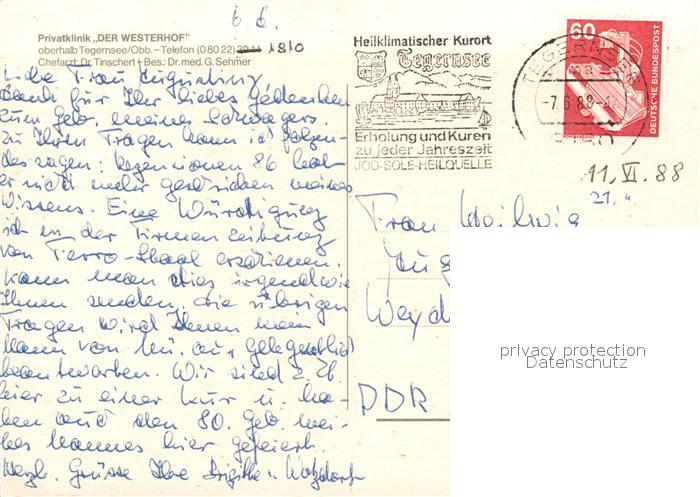 6.6.
Privatklinik „DER WESTERHOF"
oberhalb Tegernsee/Obb. – Telefon (0 80 22) 1810
Chefarzt: Dr. Tinschert + Bes.: Dr. med. G. Sehmer
Liebe Frau
Dank für Ihr liebes Gedenken
zum Geb. meines Schwagers.
Zu Ihren Fragen kann ich folgen-
des sagen: Rezensionen 86 hat
er nicht mehr geschrieben meines
Wissens. Eine Würdigung
ist in der Firmenzeitung
von Ferro-Staal erschienen.
Kann man dies irgendwie
Ihnen senden. Die übrigen
Fragen wird Ihnen mein
Mann von Mü. aus gelegentlich
beantworten. Wir sind z. Zt.
hier zu einer Kur u. ha-
ben auch den 80. Geb. mei-
nes Mannes hier gefeiert.
Herzl. Grüsse Ihre Brigitte
Heilklimatischer Kurort
Tegernsee
Erholung und Kuren
zu jeder Jahreszeit
JOD-SOLE-HEILQUELLE
TEGERNSEE
-7.6.88
60
DEUTSCHE BUNDESPOST
11. VI. 88
21. "
Frau
DDR
privacy protection
Datenschutz